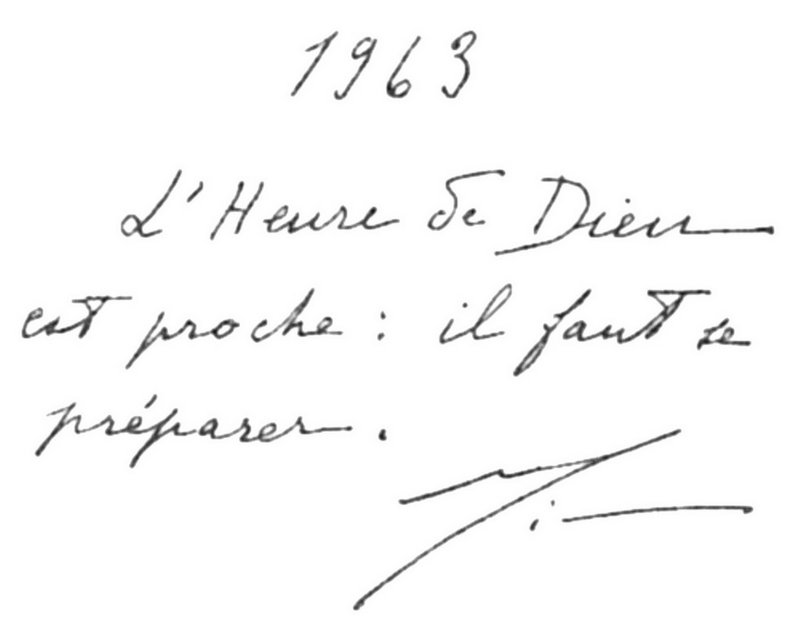 1963
L'Heure de Dieu
est proche : il faut se
préparer.